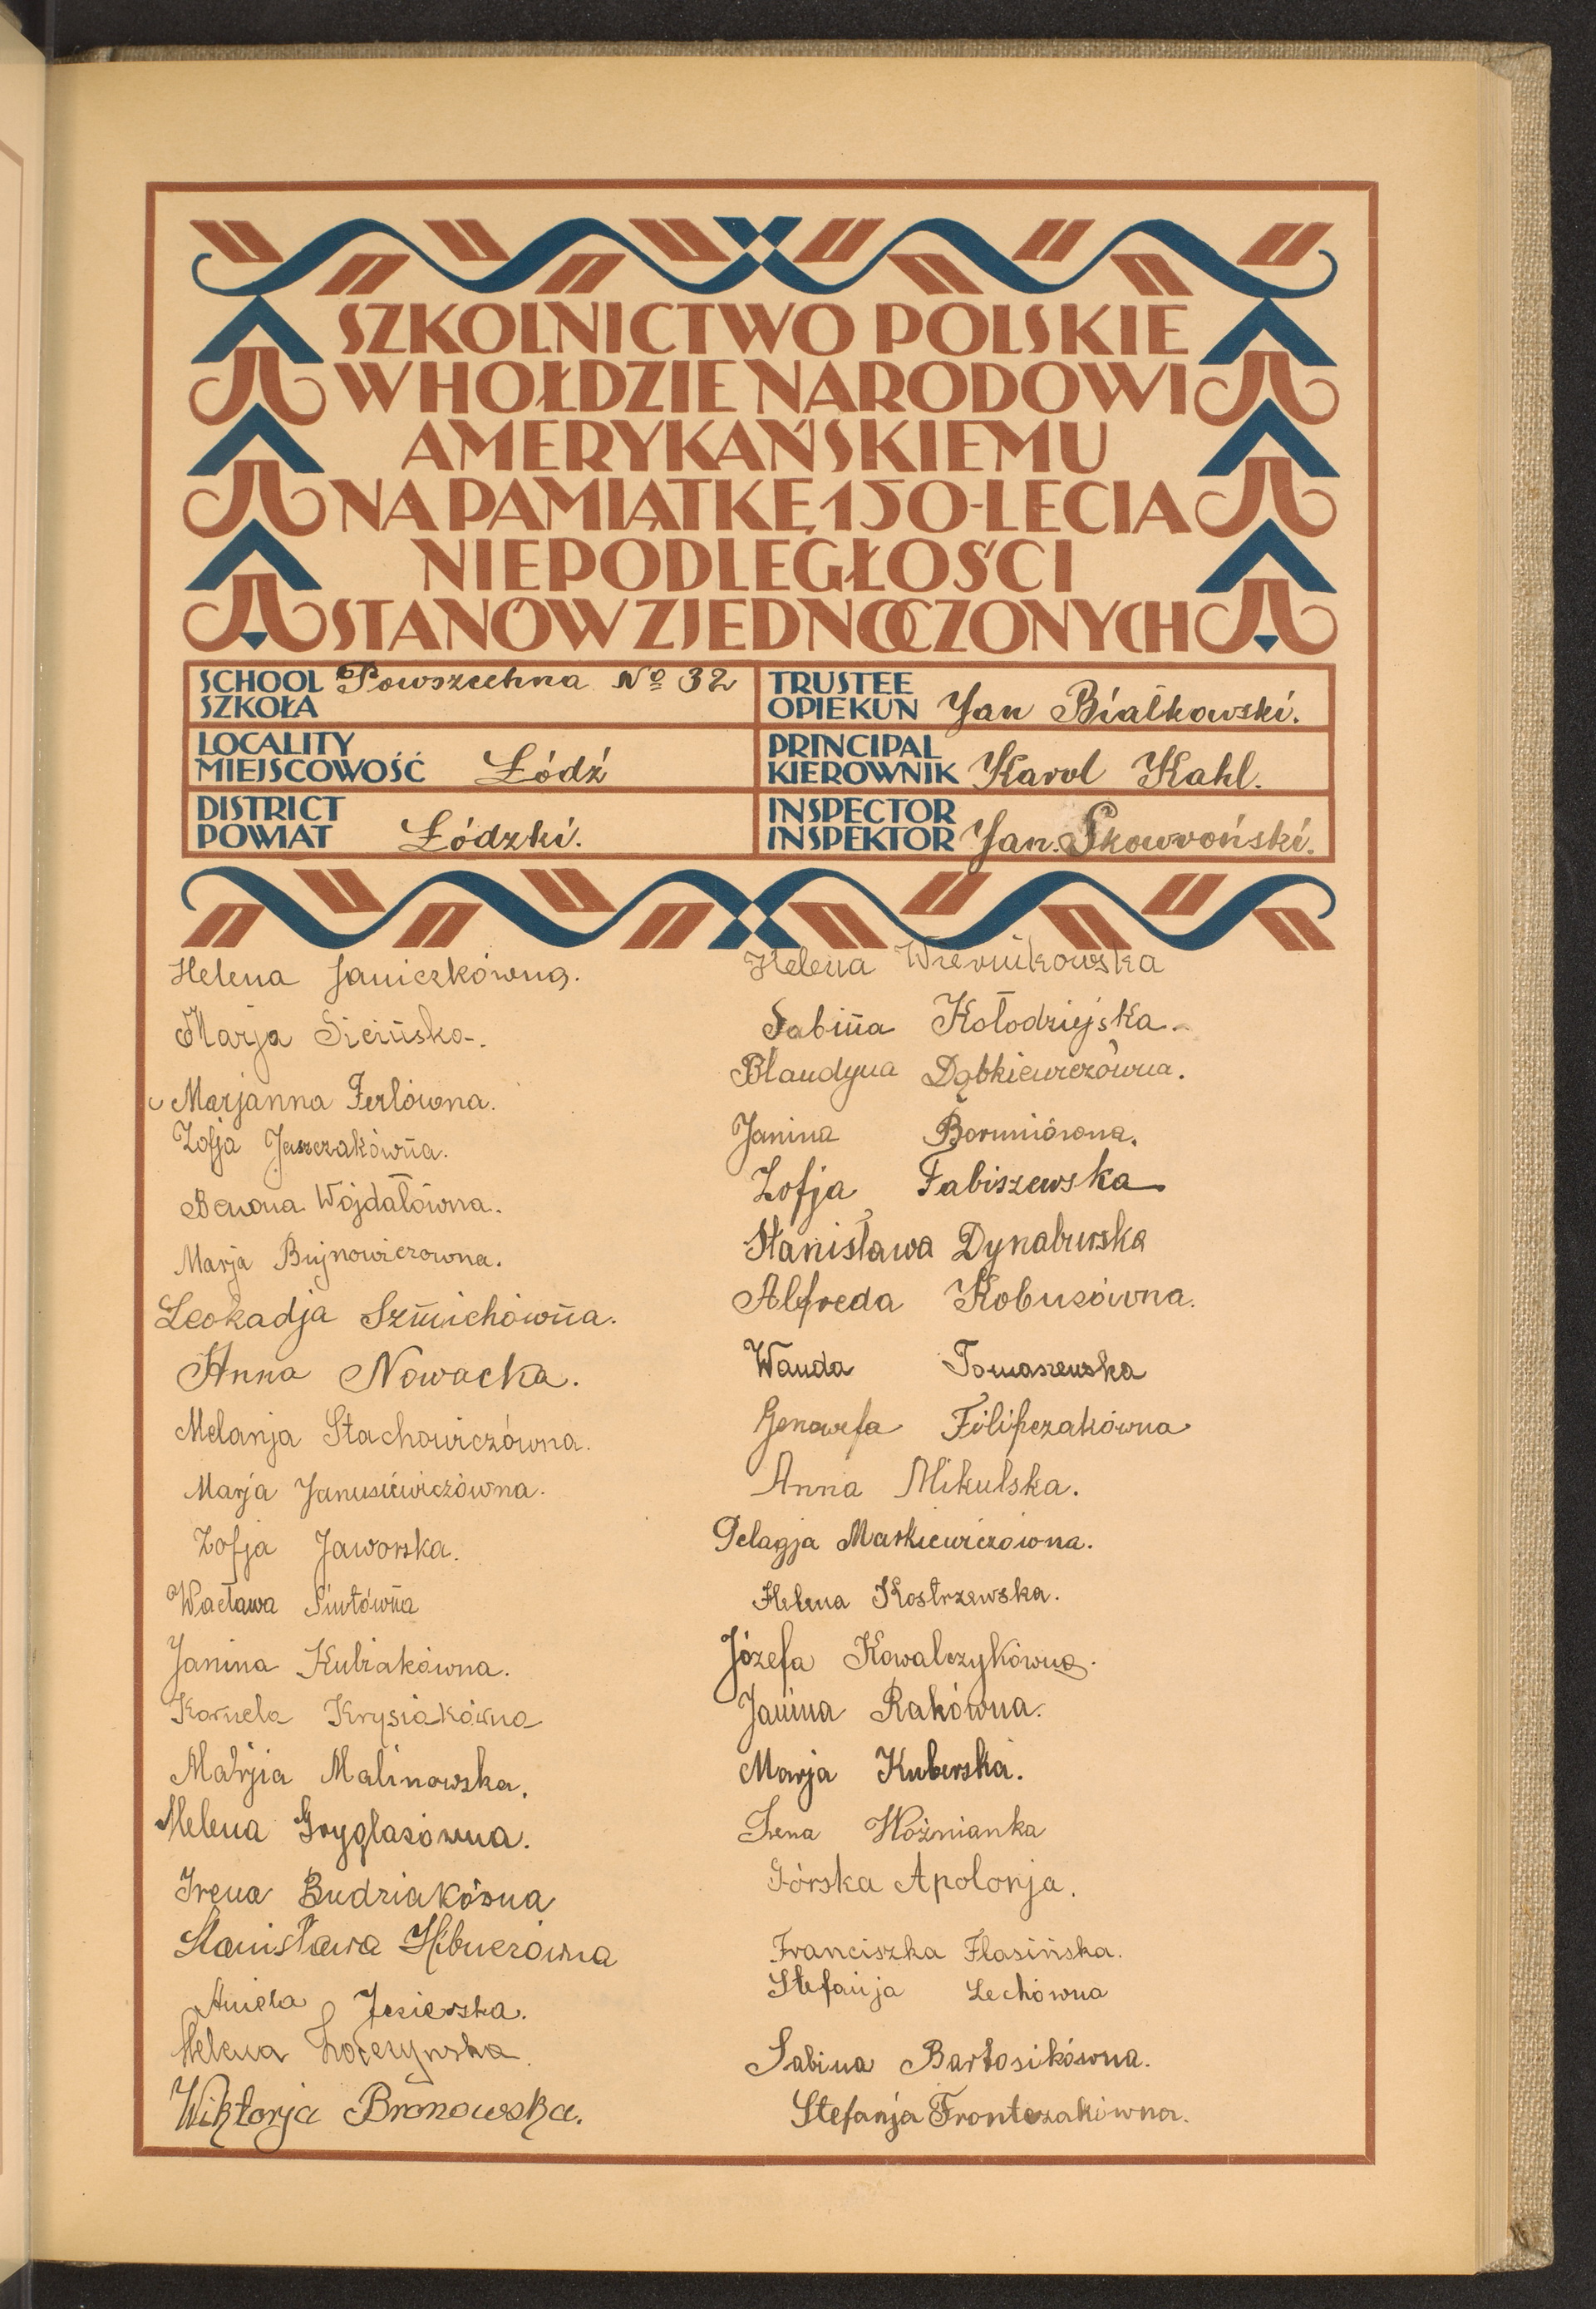 SZKOLNICTWO POLSKIE
W HOŁDZIE NARODOWI
AMERYKAŃSKIEMU
NA PAMIĄTKĘ 150-LECIA
NIEPODLEGŁOŚCI
STANÓW ZJEDNOCZONYCH
SCHOOL
SZKOŁA Powszechna № 32
TRUSTEE
OPIEKUN Jan Białkowski.
LOCALITY
MIEJSCOWOŚĆ Łódź
PRINCIPAL
KIEROWNIK Karol Kahl.
DISTRICT
POWIAT Łódzki.
INSPECTOR
INSPEKTOR Jan. Skowroński.
Helena Janiczkówna.
Marja Sicińska.
Marjanna Ferlówna.
Zofja Jaszczakówna.
Wojdałówna.
Marja Bujnowiczowna.
Leokadja Szmichówna.
Anna Nowacka.
Melanja Stachowiczówna.
Marja Janusiewiczówna.
Zofja Jaworska.
Wacława
Janina Kubiakówna.
Kornela Krysiakówna
Marjia Malinowska.
Helena Gryglasówna.
Irena Budziakówna
Stanisława Hibnerówna
Aniela Jezierska.
Helena
Wiktorja Bronowska.
Helena Wiernikowska
Sabina Kołodziejska.
Blandyna Dąbkiewiczówna.
Janina
Zofja Fabiszewska
Stanisława Dynaburska
Alfreda Kobusówna.
Wanda Tomaszewska
Genowefa Filipczakówna
Anna Mikulska.
Pelagja Maskiewiczówna.
Helena Kostrzewska.
Józefa Kowalczykówna.
Janina Rakówna.
Marja Kuberska.
Irena Woźnianka
Górska Apolonja.
Franciszka Flasińska.
Stefanja Lechówna
Sabina Bartosikówna.
Stefanja Frontczakówna.